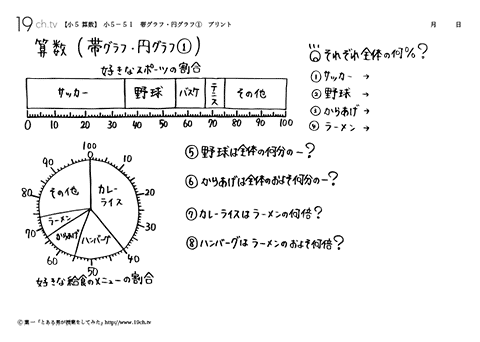 19ch.tv 【小5算数】 小5-51 帯グラフ・円グラフ① プリント 月 日
算数(帯グラフ・円グラフ①)
好きなスポーツの割合
サッカー 野球 バスケ テニス その他
0 10 20 30 40 50 60 70 80 90 100
それぞれ全体の何%?
①サッカー →
②野球 →
③からあげ →
④ラーメン →
⑤野球は全体の何分の一?
⑥からあげは全体のおよそ何分の一?
⑦カレーライスはラーメンの何倍?
⑧ハンバーグはラーメンのおよそ何倍?
100
0
90 10
80 20
70 30
60 40
50
その他 カレーライス
ラーメン
からあげ ハンバーグ
好きな給食のメニューの割合
© 葉一「とある男が授業をしてみた」http://www.19ch.tv